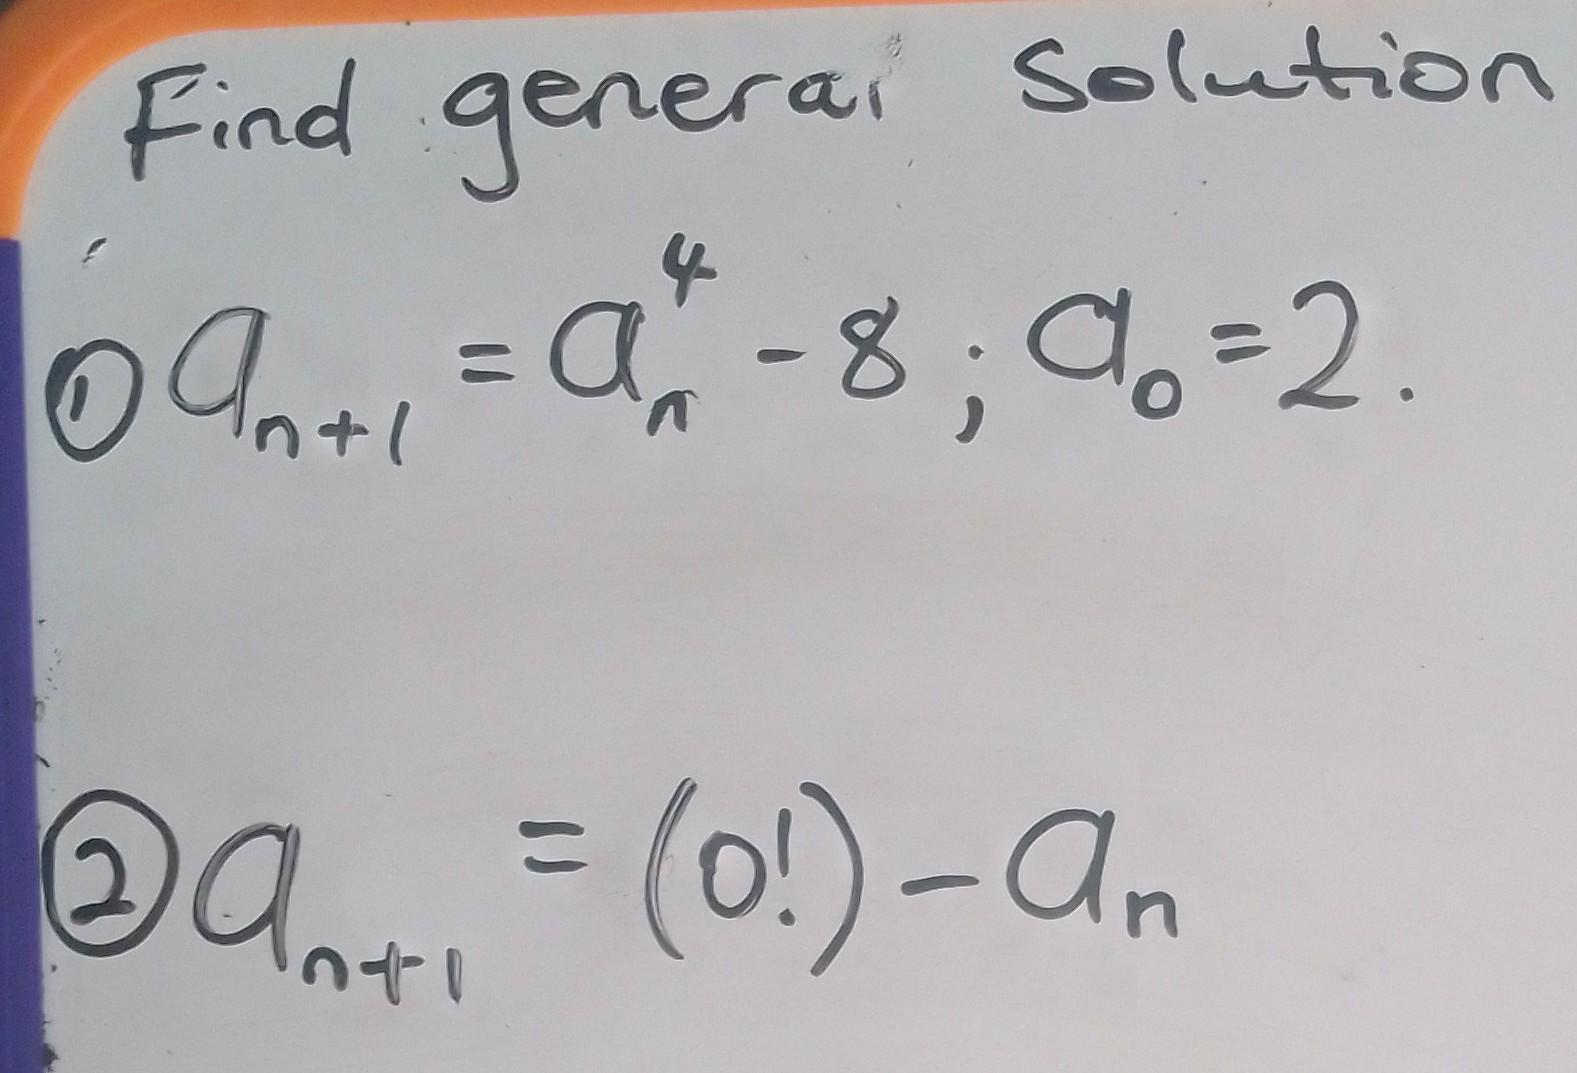 Find general solution
① aₙ₊₁ = aₙ⁴ - 8 ; a₀ = 2.
② aₙ₊₁ = (0!) - aₙ